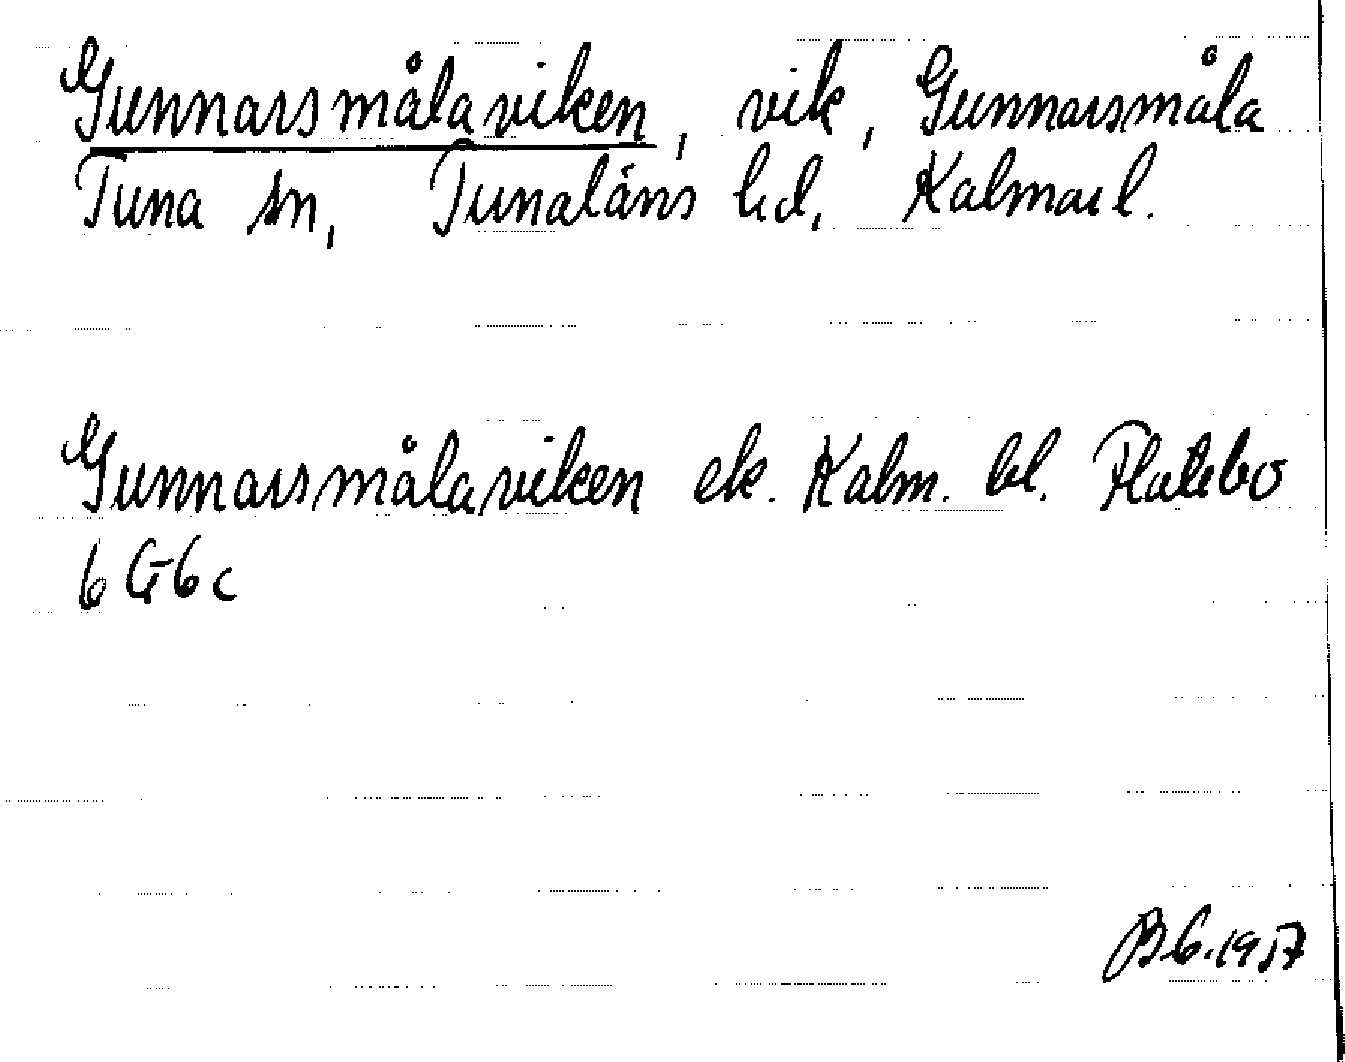 Gunnarsmålaviken, vik, Gunnarsmåla
Tuna sn, Tunaläns hd, Kalmar l.
Gunnarsmålaviken ek. Kalm. bl. Flatebo
6 G 6 c
BG. 1957